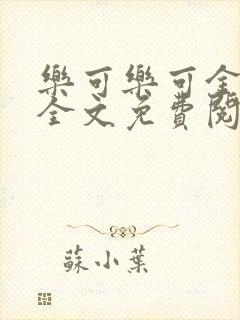 樂可樂可全
全文免費閱
蘇小葉